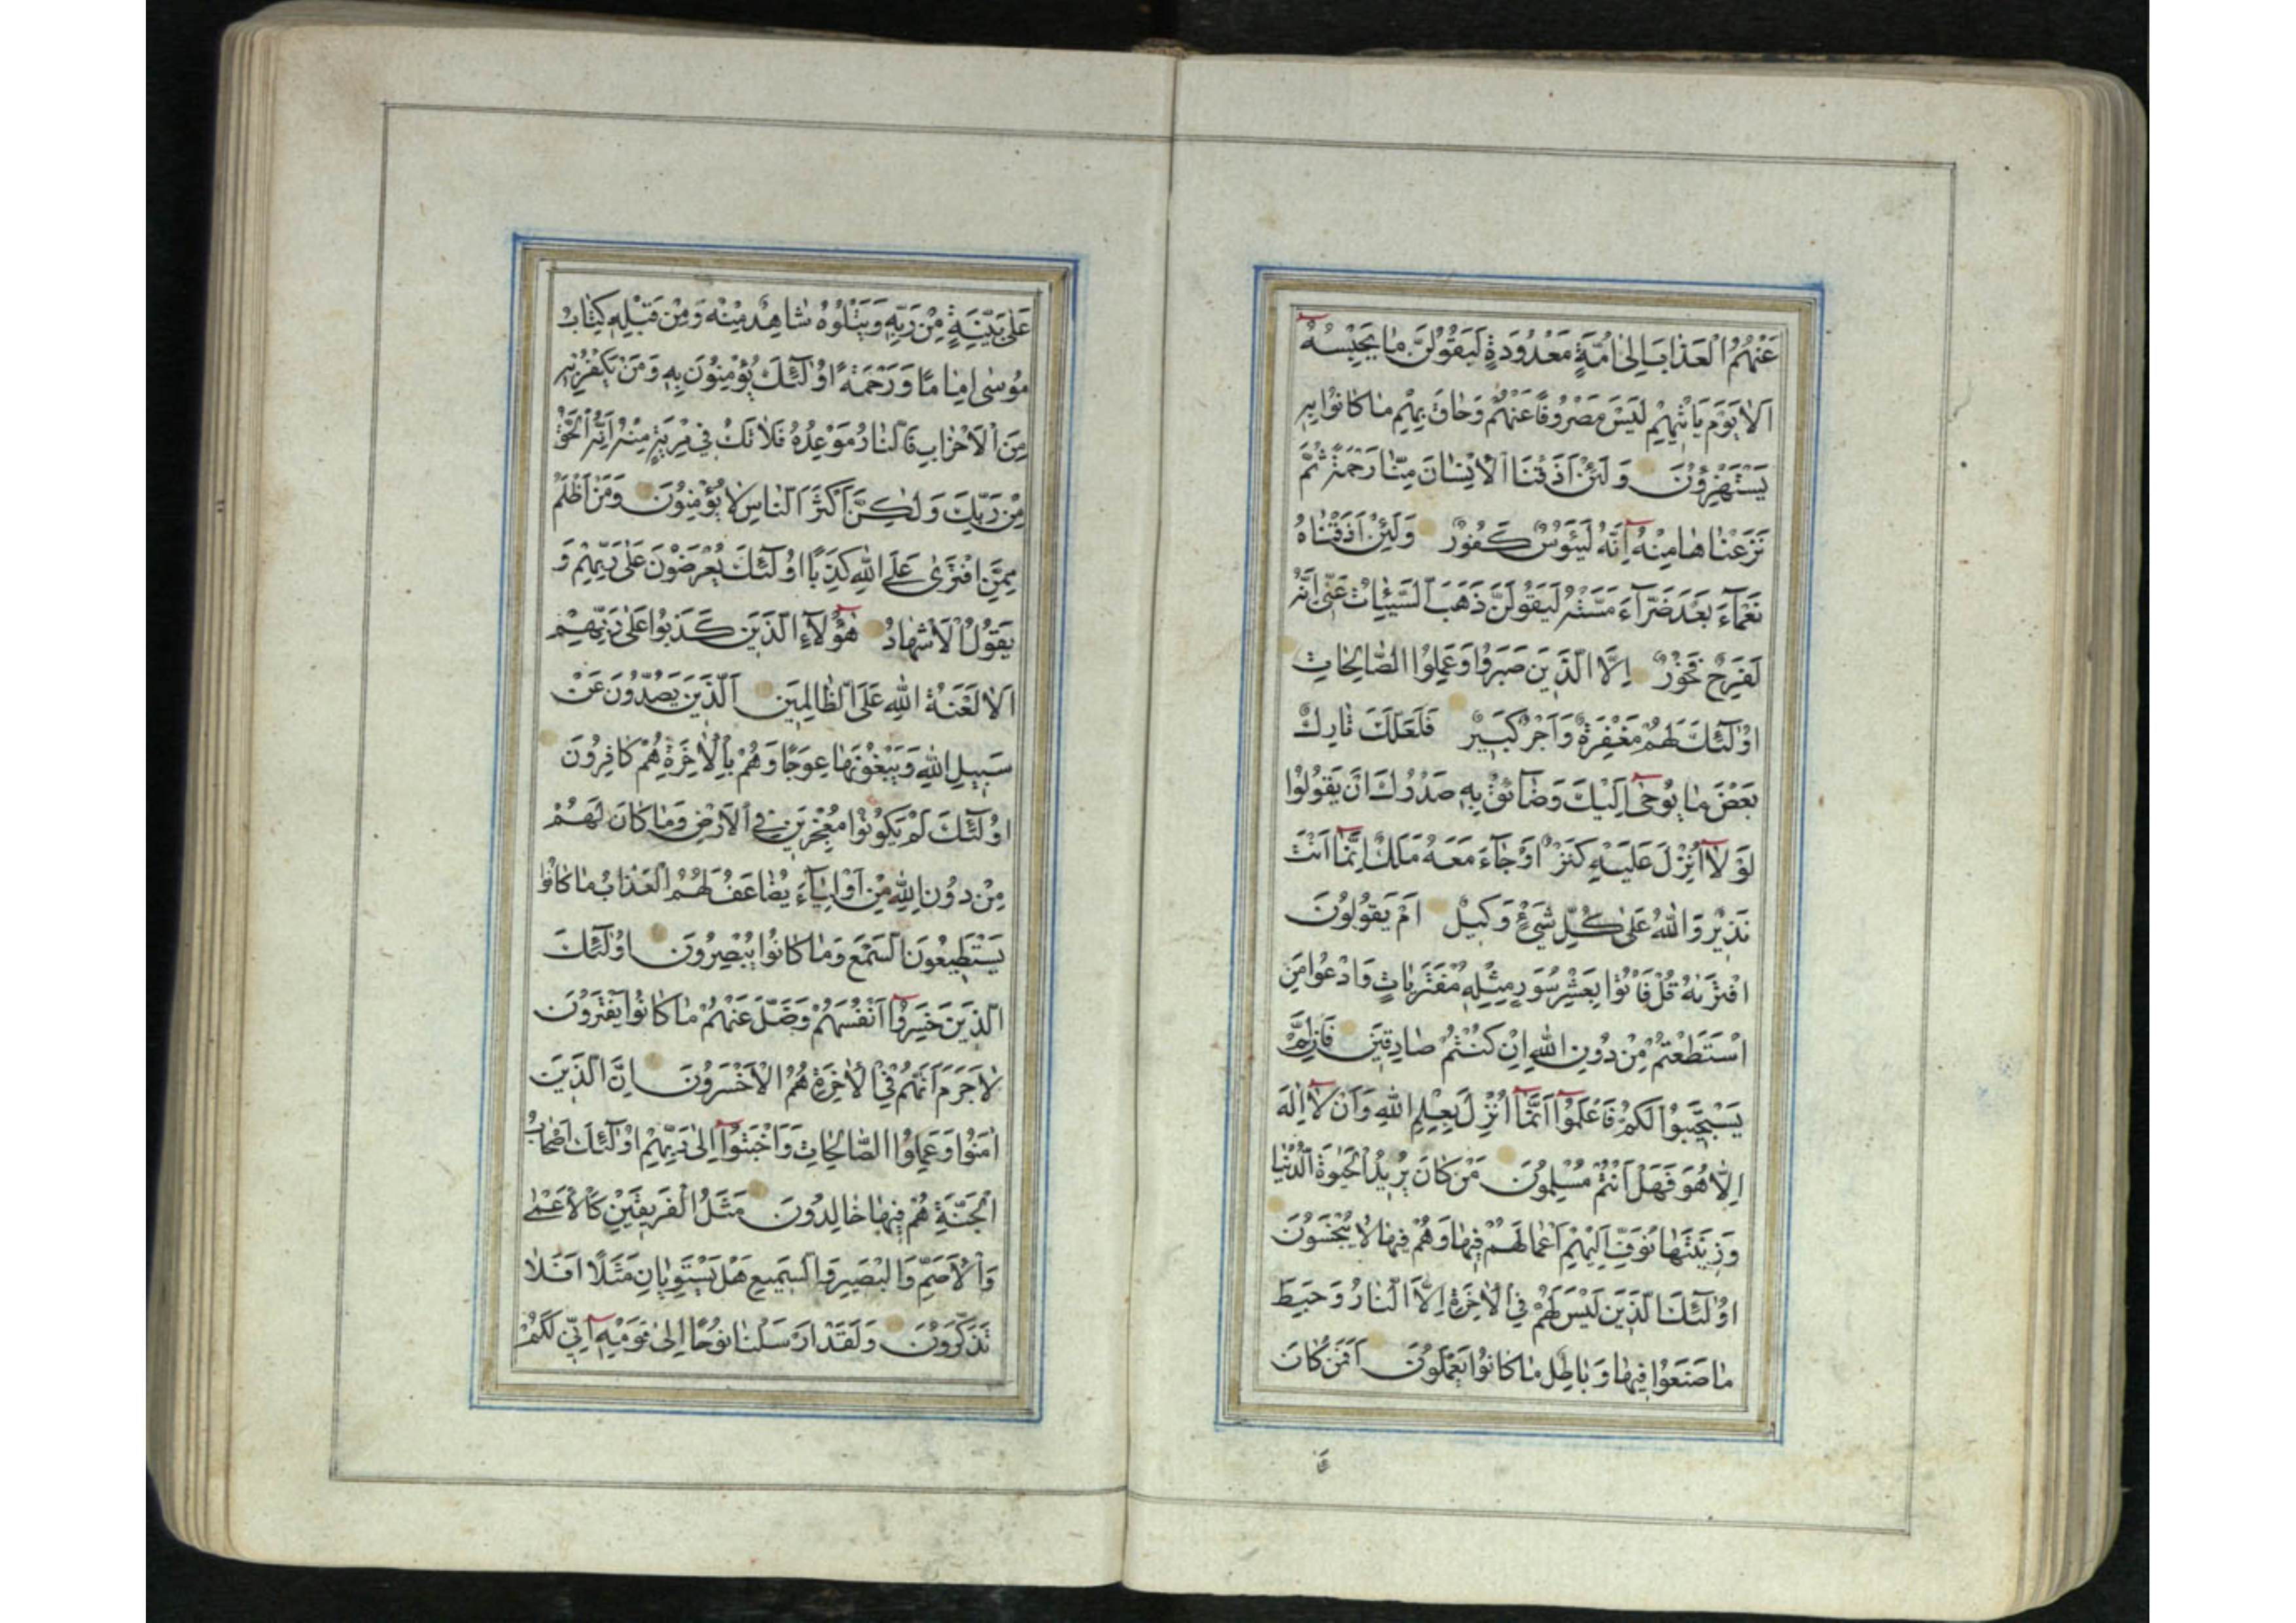 عَنْهُمُ الْعَذَابَ اِلىٰ اُمَّةٍ مَعْدُودَةٍ لَيَقُولُنَّ مٰا يَحْبِسُهُ
اَلاٰ يَوْمَ يَاْتٖيهِمْ لَيْسَ مَصْرُوفًا عَنْهُمْ وَحٰاقَ بِهِمْ مٰا كٰانُوا بِهٖ
يَسْتَهْزِؤُنَ وَلَئِنْ اَذَقْنَا الْاِنْسٰانَ مِنّٰا رَحْمَةً ثُمَّ
نَزَعْنٰاهٰا مِنْهُ اِنَّهُ لَيَئُوسٌ كَفُورٌ وَلَئِنْ اَذَقْنٰاهُ
نَعْمٰآءَ بَعْدَ ضَرّٰآءَ مَسَّتْهُ لَيَقُولَنَّ ذَهَبَ السَّيِّئٰاتُ عَنّٖى اِنَّهُ
لَفَرِحٌ فَخُورٌ اِلَّا الَّذٖينَ صَبَرُوا وَعَمِلُوا الصّٰالِحٰاتِ
اُولٰٓئِكَ لَهُمْ مَغْفِرَةٌ وَاَجْرٌ كَبٖيرٌ فَلَعَلَّكَ تٰارِكٌ
بَعْضَ مٰا يُوحىٰٓ اِلَيْكَ وَضٰآئِقٌ بِهٖ صَدْرُكَ اَنْ يَقُولُوا
لَوْ لٰآ اُنْزِلَ عَلَيْهِ كَنْزٌ اَوْ جٰآءَ مَعَهُ مَلَكٌ اِنَّمٰٓا اَنْتَ
نَذٖيرٌ وَاللّٰهُ عَلىٰ كُلِّ شَيْءٍ وَكٖيلٌ اَمْ يَقُولُونَ
افْتَرٰيهُ قُلْ فَاْتُوا بِعَشْرِ سُوَرٍ مِثْلِهٖ مُفْتَرَيٰاتٍ وَادْعُوا مَنِ
اسْتَطَعْتُمْ مِنْ دُونِ اللّٰهِ اِنْ كُنْتُمْ صٰادِقٖينَ فَاِلَّمْ
يَسْتَجٖيبُوا لَكُمْ فَاعْلَمُوٓا اَنَّمٰٓا اُنْزِلَ بِعِلْمِ اللّٰهِ وَاَنْ لٰآ اِلٰهَ
اِلّٰا هُوَ فَهَلْ اَنْتُمْ مُسْلِمُونَ مَنْ كٰانَ يُرٖيدُ الْحَيٰوةَ الدُّنْيٰا
وَزٖينَتَهٰا نُوَفِّ اِلَيْهِمْ اَعْمٰالَهُمْ فٖيهٰا وَهُمْ فٖيهٰا لاٰ يُبْخَسُونَ
اُولٰٓئِكَ الَّذٖينَ لَيْسَ لَهُمْ فِي الْاٰخِرَةِ اِلَّا النّٰارُ وَحَبِطَ
مٰا صَنَعُوا فٖيهٰا وَبٰاطِلٌ مٰا كٰانُوا يَعْمَلُونَ اَفَمَنْ كٰانَ
عَلىٰ بَيِّنَةٍ مِنْ رَبِّهٖ وَيَتْلُوهُ شٰاهِدٌ مِنْهُ وَمِنْ قَبْلِهٖ كِتٰابُ
مُوسىٰ اِمٰامًا وَرَحْمَةً اُولٰٓئِكَ يُؤْمِنُونَ بِهٖ وَمَنْ يَكْفُرْ بِهٖ
مِنَ الْاَحْزٰابِ فَالنّٰارُ مَوْعِدُهُ فَلاٰ تَكُ فٖي مِرْيَةٍ مِنْهُ اِنَّهُ الْحَقُّ
مِنْ رَبِّكَ وَلٰكِنَّ اَكْثَرَ النّٰاسِ لاٰ يُؤْمِنُونَ وَمَنْ اَظْلَمُ
مِمَّنِ افْتَرىٰ عَلَى اللّٰهِ كَذِبًا اُولٰٓئِكَ يُعْرَضُونَ عَلىٰ رَبِّهِمْ وَ
يَقُولُ الْاَشْهٰادُ هٰٓؤُلٰآءِ الَّذٖينَ كَذَبُوا عَلىٰ رَبِّهِمْ
اَلاٰ لَعْنَةُ اللّٰهِ عَلَى الظّٰالِمٖينَ اَلَّذٖينَ يَصُدُّونَ عَنْ
سَبٖيلِ اللّٰهِ وَيَبْغُونَهٰا عِوَجًا وَهُمْ بِالْاٰخِرَةِ هُمْ كٰافِرُونَ
اُولٰٓئِكَ لَمْ يَكُونُوا مُعْجِزٖينَ فِي الْاَرْضِ وَمٰا كٰانَ لَهُمْ
مِنْ دُونِ اللّٰهِ مِنْ اَوْلِيٰآءَ يُضٰاعَفُ لَهُمُ الْعَذٰابُ مٰا كٰانُوا
يَسْتَطٖيعُونَ السَّمْعَ وَمٰا كٰانُوا يُبْصِرُونَ اُولٰٓئِكَ
الَّذٖينَ خَسِرُوٓا اَنْفُسَهُمْ وَضَلَّ عَنْهُمْ مٰا كٰانُوا يَفْتَرُونَ
لاٰ جَرَمَ اَنَّهُمْ فِي الْاٰخِرَةِ هُمُ الْاَخْسَرُونَ اِنَّ الَّذٖينَ
اٰمَنُوا وَعَمِلُوا الصّٰالِحٰاتِ وَاَخْبَتُوٓا اِلىٰ رَبِّهِمْ اُولٰٓئِكَ اَصْحٰابُ
الْجَنَّةِ هُمْ فٖيهٰا خٰالِدُونَ مَثَلُ الْفَرٖيقَيْنِ كَالْاَعْمىٰ
وَالْاَصَمِّ وَالْبَصٖيرِ وَالسَّمٖيعِ هَلْ يَسْتَوِيٰانِ مَثَلًا اَفَلاٰ
تَذَكَّرُونَ وَلَقَدْ اَرْسَلْنٰا نُوحًا اِلىٰ قَوْمِهٖٓ اِنّٖي لَكُمْ